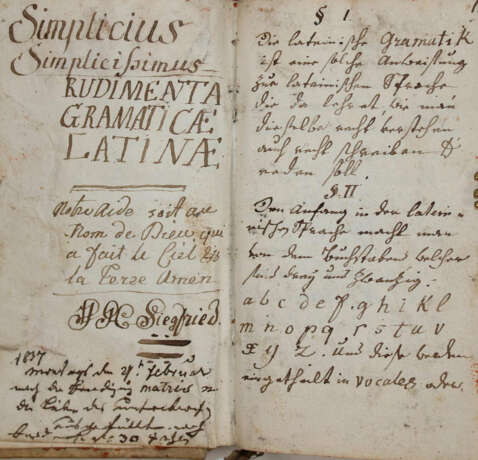 Simplicius
Simplicissimus
RUDIMENTA
GRAMATICÆ
LATINÆ
Notre Aide soit au
Nom de Dieu qui
a fait le Ciel &
la Terre Amen.
Siegfried.
1837
Montags den Februar
nach der matris
die des
30
§ I
Die lateinische Gramatik
ist eine solche Anweisung
zur lateinischen Sprache
die da lehret wie man
dieselbe recht verstehen
auch recht schreiben &
reden soll.
§. II
Den Anfang in der latein-
ischen Sprache macht man
von den Buchstaben welcher
sind drey und zwanzig:
a b c d e f. g h i k l
m n o p q r s t u v
x y z. Und diese werden
eingetheilt in vocales oder